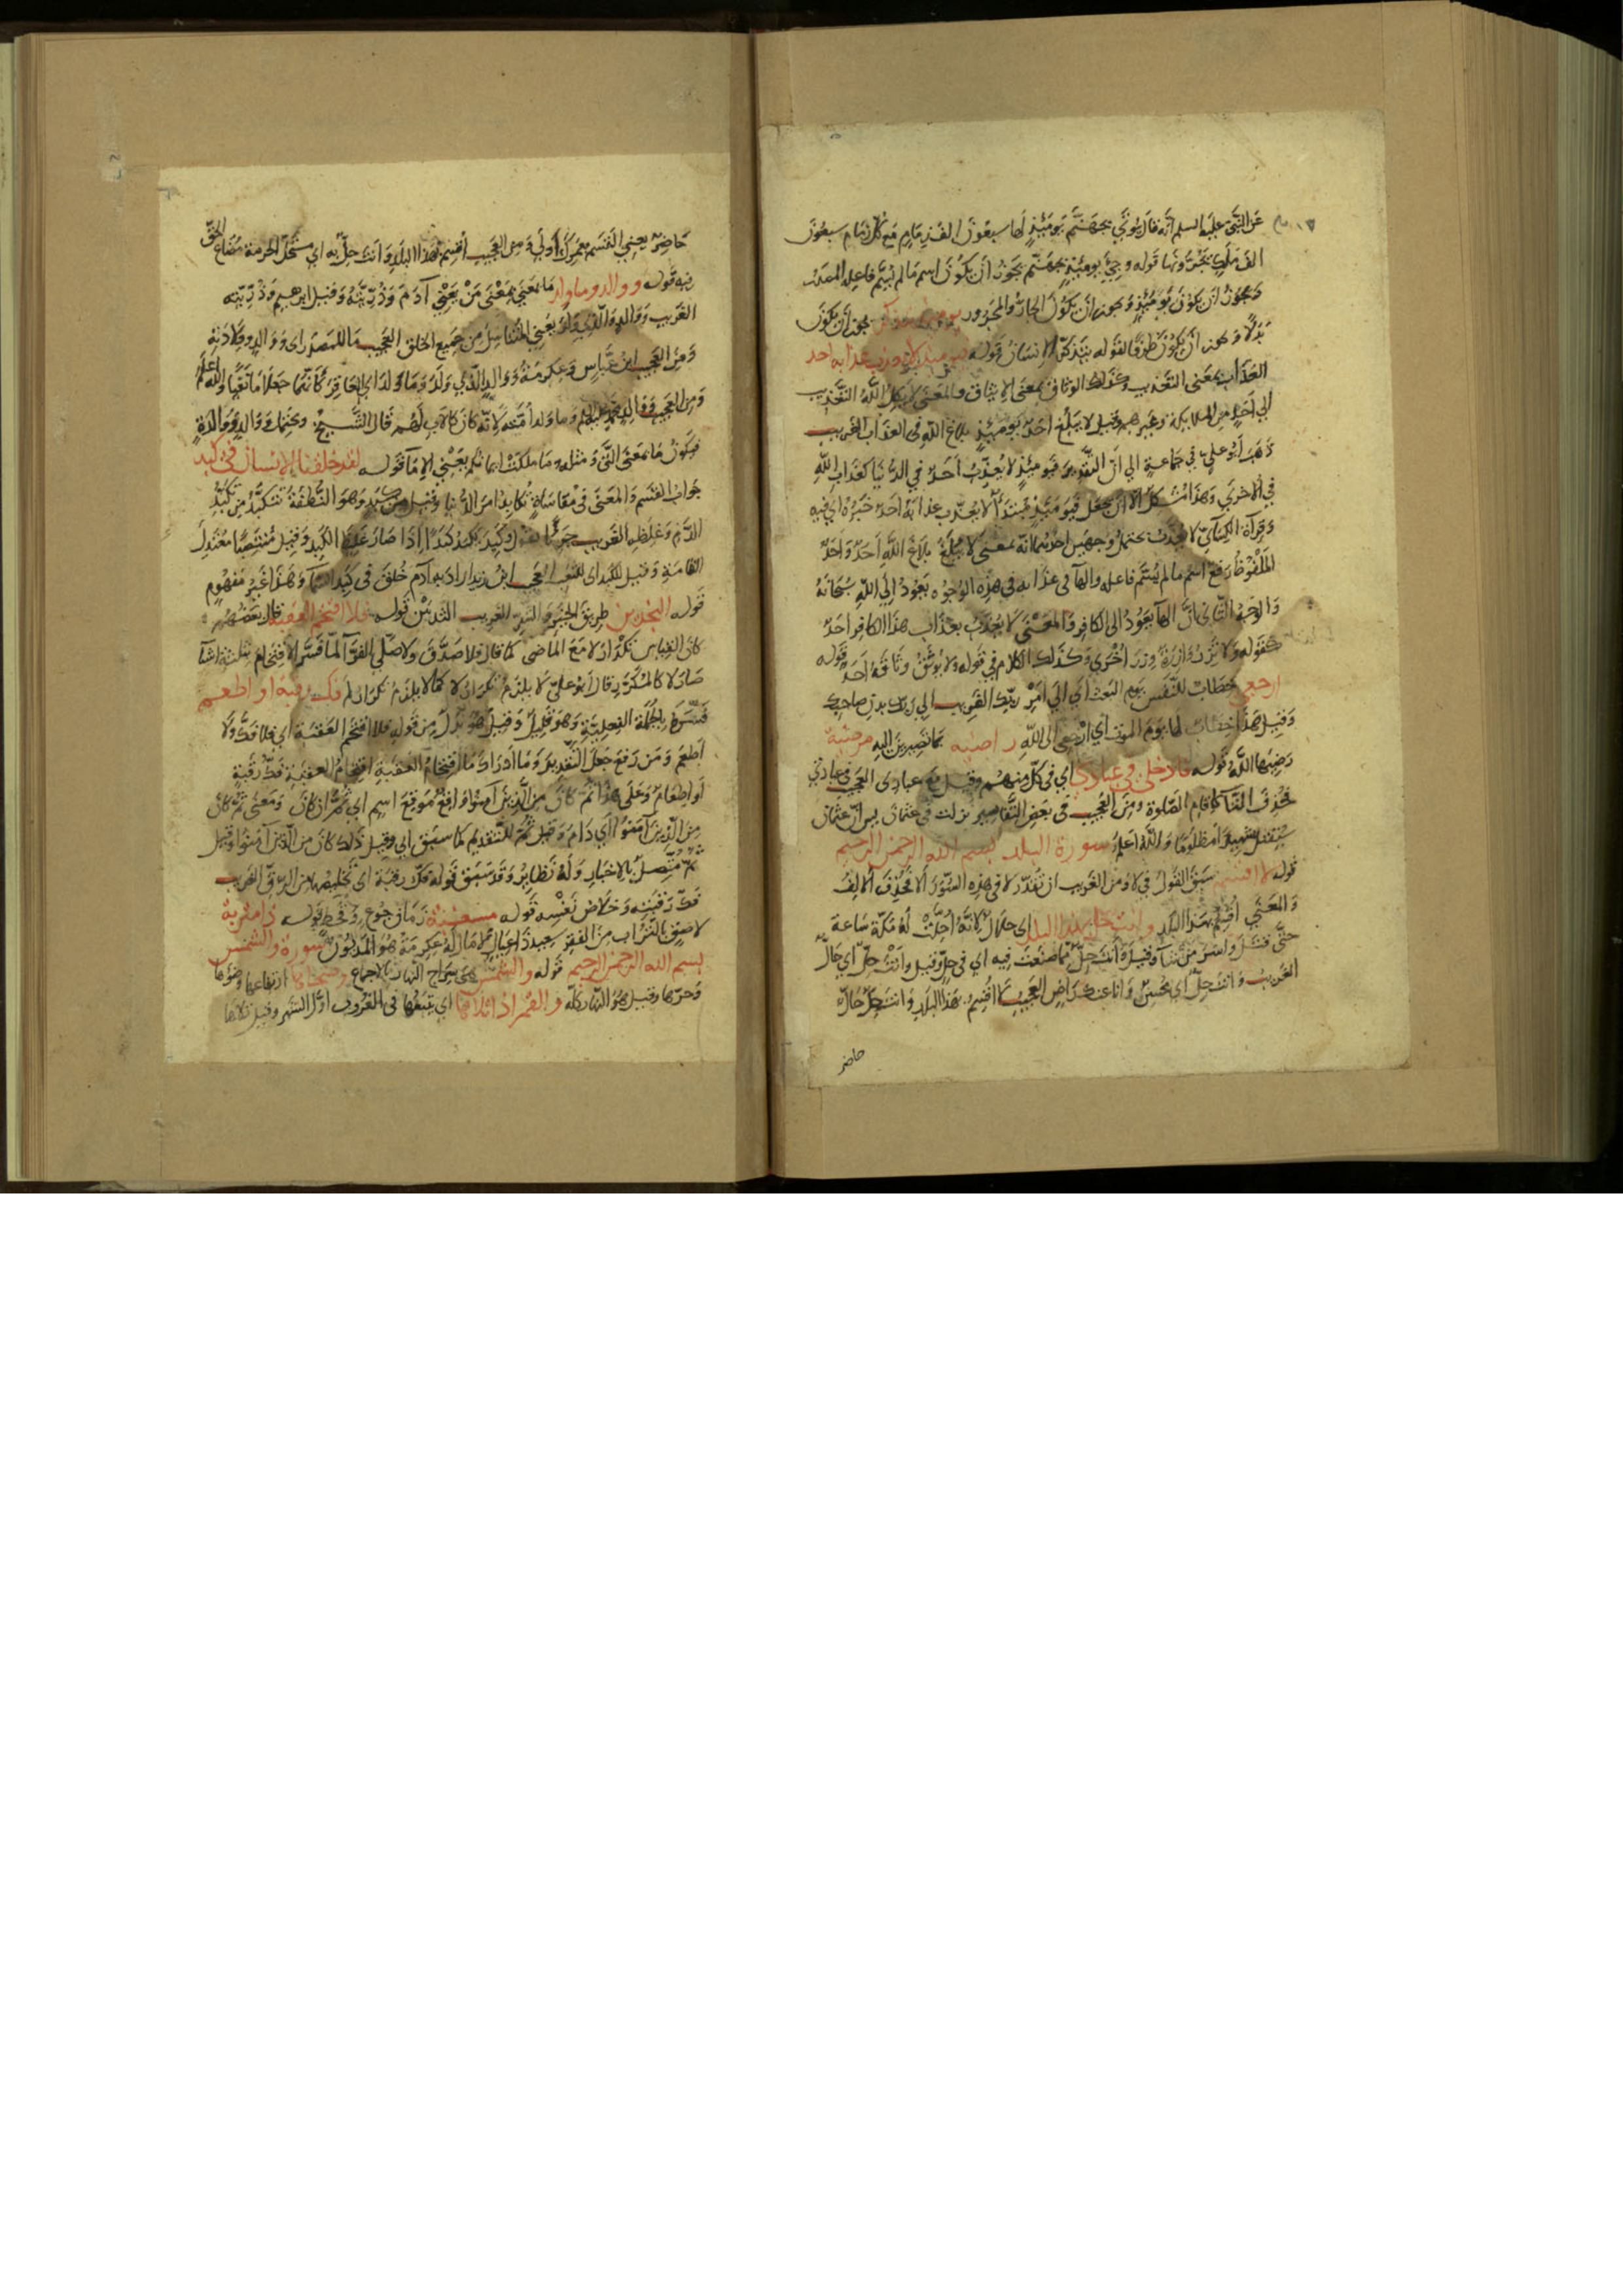 عن النبى عليه السلم انه قال يؤتى بجهنم يومئذ لها سبعون الف زمام مع كل زمام سبعون
الف ملك يجرونها قوله وجئ يومئذ بجهنم يجوز ان يكون اسم ما لم يسم فاعله المصدر
ويجوز ان يكون يومئذ ويجوز ان يكون الجار والمجرور يومئذ يتذكر يجوز ان يكون
بدلا ويجوز ان يكون ظرفا لقوله يتذكر الانسان قوله فيومئذ لا يعذب عذابه احد
العذاب بمعنى التعذيب وكذلك الوثاق بمعنى الايثاق والمعنى لا يكل الله التعذيب
الى احد من الملايكة وغيرهم وقيل لا يبلغ احد يومئذ بلاغ الله فى العذاب الغريب
ذهب ابو علي في جماعة الى ان التقدير فيومئذ لا يعذب احد في الدنيا كعذاب الله
في الاخرى وهذا مشكل الا ان يجعل فيومئذ مبتدأ لا يعذب عذابه احد خبره اي فيه
وقراة الكسائي لا يعذب يحتمل وجهين احدهما انه بمعنى لا يبلغ بلاغ الله احد واحد
الملفوظ رفع اسم ما لم يسم فاعله والهآ فى عذابه فى هذه الوجوه يعود الى الله سبحانه
والوجه الثانى ان الهآ يعود الى الكافر والمعنى لا يعذب بعذاب هذا الكافر احد
كقوله ولا تزر وازرة وزر اخرى وكذلك الكلام في قوله ولا يوثق وثاقه احد قوله
ارجعي خطاب للنفس يوم البعث اي الى امر ربك الغريب الى ربك بدن صاحبك
وقيل هذا خطاب لها يوم الموت اي ارجعي الى الله راضيه بما تصيرين اليه مرضية
رضيها الله قوله فادخلى في عبادى اي فى كل منهم وقيل مع عبادى العجيب فى عبادتي
فحذف التآ كاقام الصلوة ومن العجيب فى بعض التفاسير نزلت فى عثمان بن عثمان
سيقتل شهيدا مظلوما والله اعلم سورة البلد بسم الله الرحمن الرحيم
قوله لا اقسم سبق القول في لا ومن الغريب ان تقدر لا فى هذه السور الا فحذف الالف
والمعنى اقسم بهذا البلد وانت حل بهذا البلد اى حلال لانه احلت له مكة ساعة
حتى قتل واسر من شآ وقيل وانت حل مما صنعت فيه اي فى حل وقيل وانت حل اي حال
الغريب وانت حل اي محسن وانا عنك راض العجيب لا اقسم بهذا البلد وانت حل حال
حاضر
حاضر يعنى القسم بعمرك اولى ومن العجيب اقسم بهذا البلد وانت حل به اي مستحل الحرمة مضاع الحق
فيه قوله ووالد وما ولد ما بمعنى من يعني آدم وذريته وقيل ابرهيم وذريته
الغريب ووالد والذي ولد يعنى المتناسل من جميع الخلق العجيب ما للمصدر اى ووالد وولادته
ومن العجيب ابن عباس وعكرمة ووالد الذي ولد وما ولد اى العاقر كانهما جعلا ما نفيا والله اعلم
ومن العجيب ووالد محمد عليه السلم وما ولد امته لانه كان كالاب لهم قال الشيخ ويحتمل ووالد ووالدة
فيكون ما بمعنى التى ومثله وما ملكت ايمانكم يعني الاما قوله لقد خلقنا الانسان فى كبد
جواب القسم والمعنى فى مقاساة يكابد امر الدنيا وقيل من كبد وهو النطفة تتكبد من تكبد
الدم وغلظه الغريب تقول كبد يكبد كبدا اذا صار غليظ الكبد وقيل منتصبا معتدل
القامة وقيل للكبد اى للتعب العجيب ابن زيد اراد به آدم خلق فى كبد السمآ وهذا غير مفهوم
قوله النجدين طريق الخير والشر الغريب الثديين قوله فلا اقتحم العقبة قال بعضهم
كان القياس تكرار لا مع الماضى كما قال فلا صدق ولا صلى الفرآ لما فسر الاقتحام بثلثة اشيآ
صار لا كالمكرر قال ابو علي لا يلزم تكرار لا كما لا يلزم تكرار لم فك رقبة او اطعم
فسره بالجملة الفعلية وهو قليل وقيل هو بدل من قوله فلا اقتحم العقبة اي فلا فك ولا
اطعم ومن رفع جعل التقدير وما ادراك ما اقتحام العقبة اقتحام العقبة فك رقبة
او اطعام وعلى هذا ثم كان من الذين آمنوا واقع موقع اسم اي ثم ان كان ومعنى ثم كان
من الذين آمنوا اي دام وقيل ثم للتقديم كما سبق ابى وقيل ذلك كان من الذين آمنوا وقيل
ثم متصل بالاخبار وله نظاير وقد سبق قوله فك رقبة اى تخليصها من الرق الغريب
فك رقبته وخلاص نفسه قوله مسغبة زمان جوع وقحط قوله ذا متربة
لاصق بالتراب من الفقر سعيد ذا عيال لا مال له عكرمة هو المديون سورة والشمس
بسم الله الرحمن الرحيم قوله والشمس هى سراج النهار بالاجماع وضحاها ارتفاعها وضوها
وحرها وقيل هو النهار كله والقمر اذا تلاها اي يتبعها فى الغروب اول الشهر وقيل تلاها